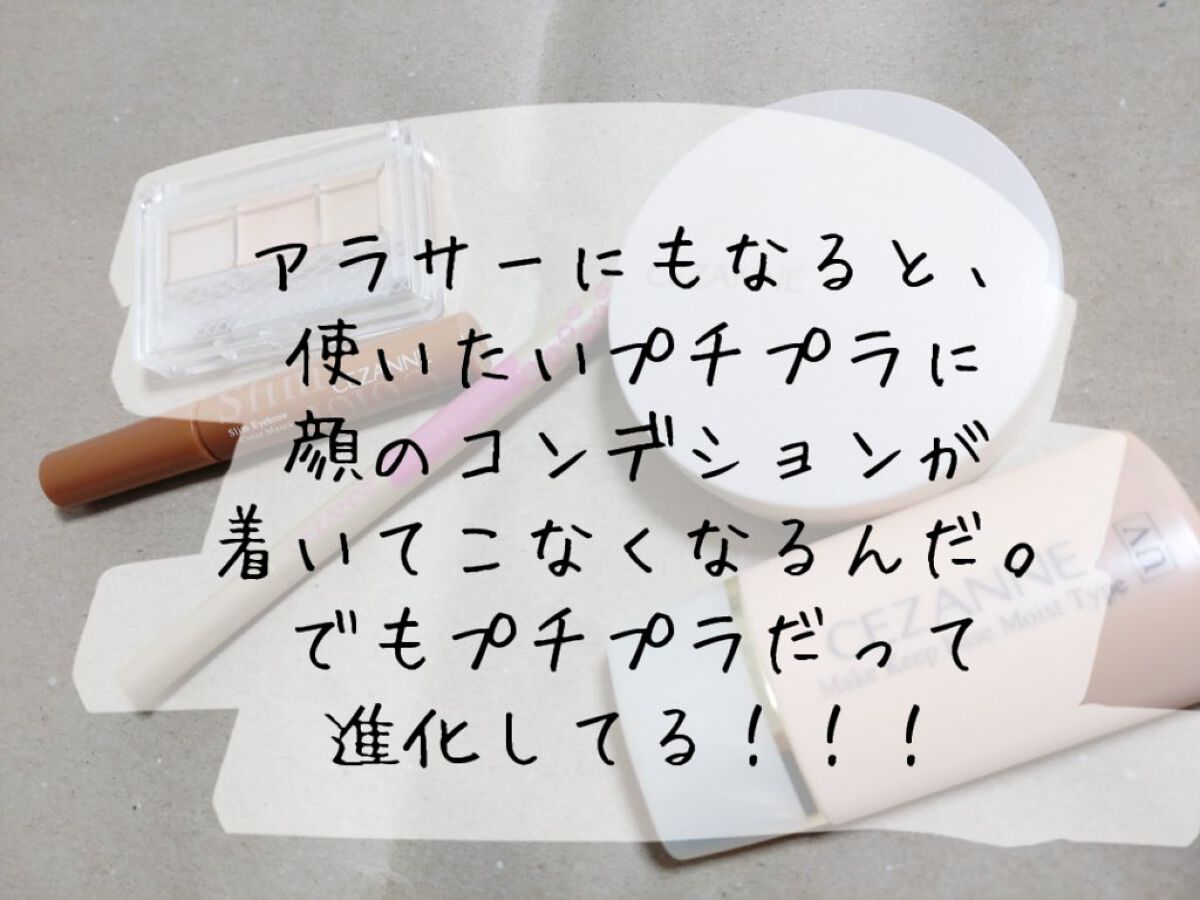 アラサーにもなると、
使いたいプチプラに
顔のコンデションが
着いてこなくなるんだ。
でもプチプラだって
進化してる！！！
CEZANNE
Slim Eyebrow
CEZANNE
Make Keep Base Moist Type
UV